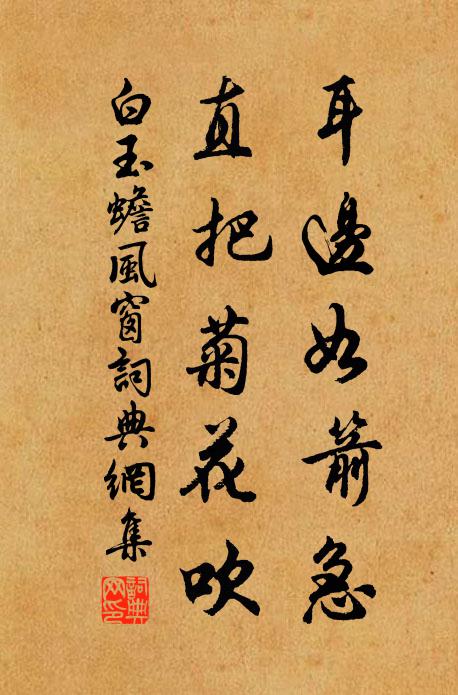 耳邊如箭急
直把菊花吹
白玉蟾風窗詞典網集
詞典
网印